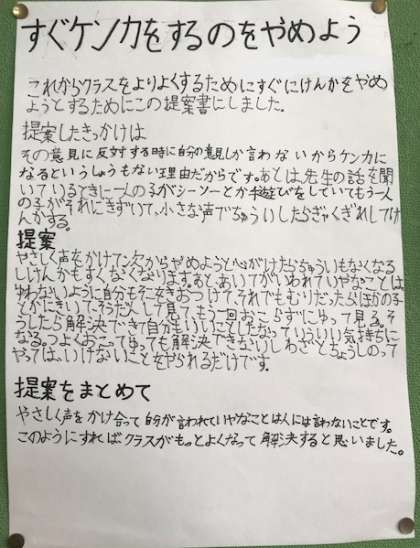 すぐケンカをするのをやめよう
これからクラスをよりよくするためにすぐにけんかをやめ
ようとするためにこの提案書にしました。
提案したきっかけは
その意見に反対する時に自分の意見しか言わないからケンカに
なるというしょうもない理由だからです。あとは、先生の話を聞
いているときに一人の子がシーソーとか手遊びをしていてもう一人
の子がそれにきずいて、小さな声でちゅういしたらぎゃくぎれしてけ
んかする。
提案
やさしく声をかけて次からやめようと心がけたらちゅういもなくなる
しけんかもすくなくなります。あと、あいてがいわれていやなことは
ゆわないように自分もそこをきおつけて、それでもむりだったらほかの子
とかにきいて、そうだんして見て、もう一回おこらずにゆって見る。そ
うしたら解決できて自分もいいことしたなっていういい気持ちに
なる。つよくおこってゆっても解決できないしわざとちょうしのって
やっては、いけないことをやられるだけです。
提案をまとめて
やさしく声をかけ合って自分が言われていやなことは人には言わないことです。
このようにすればクラスがもっとよくなって解決すると思いました。